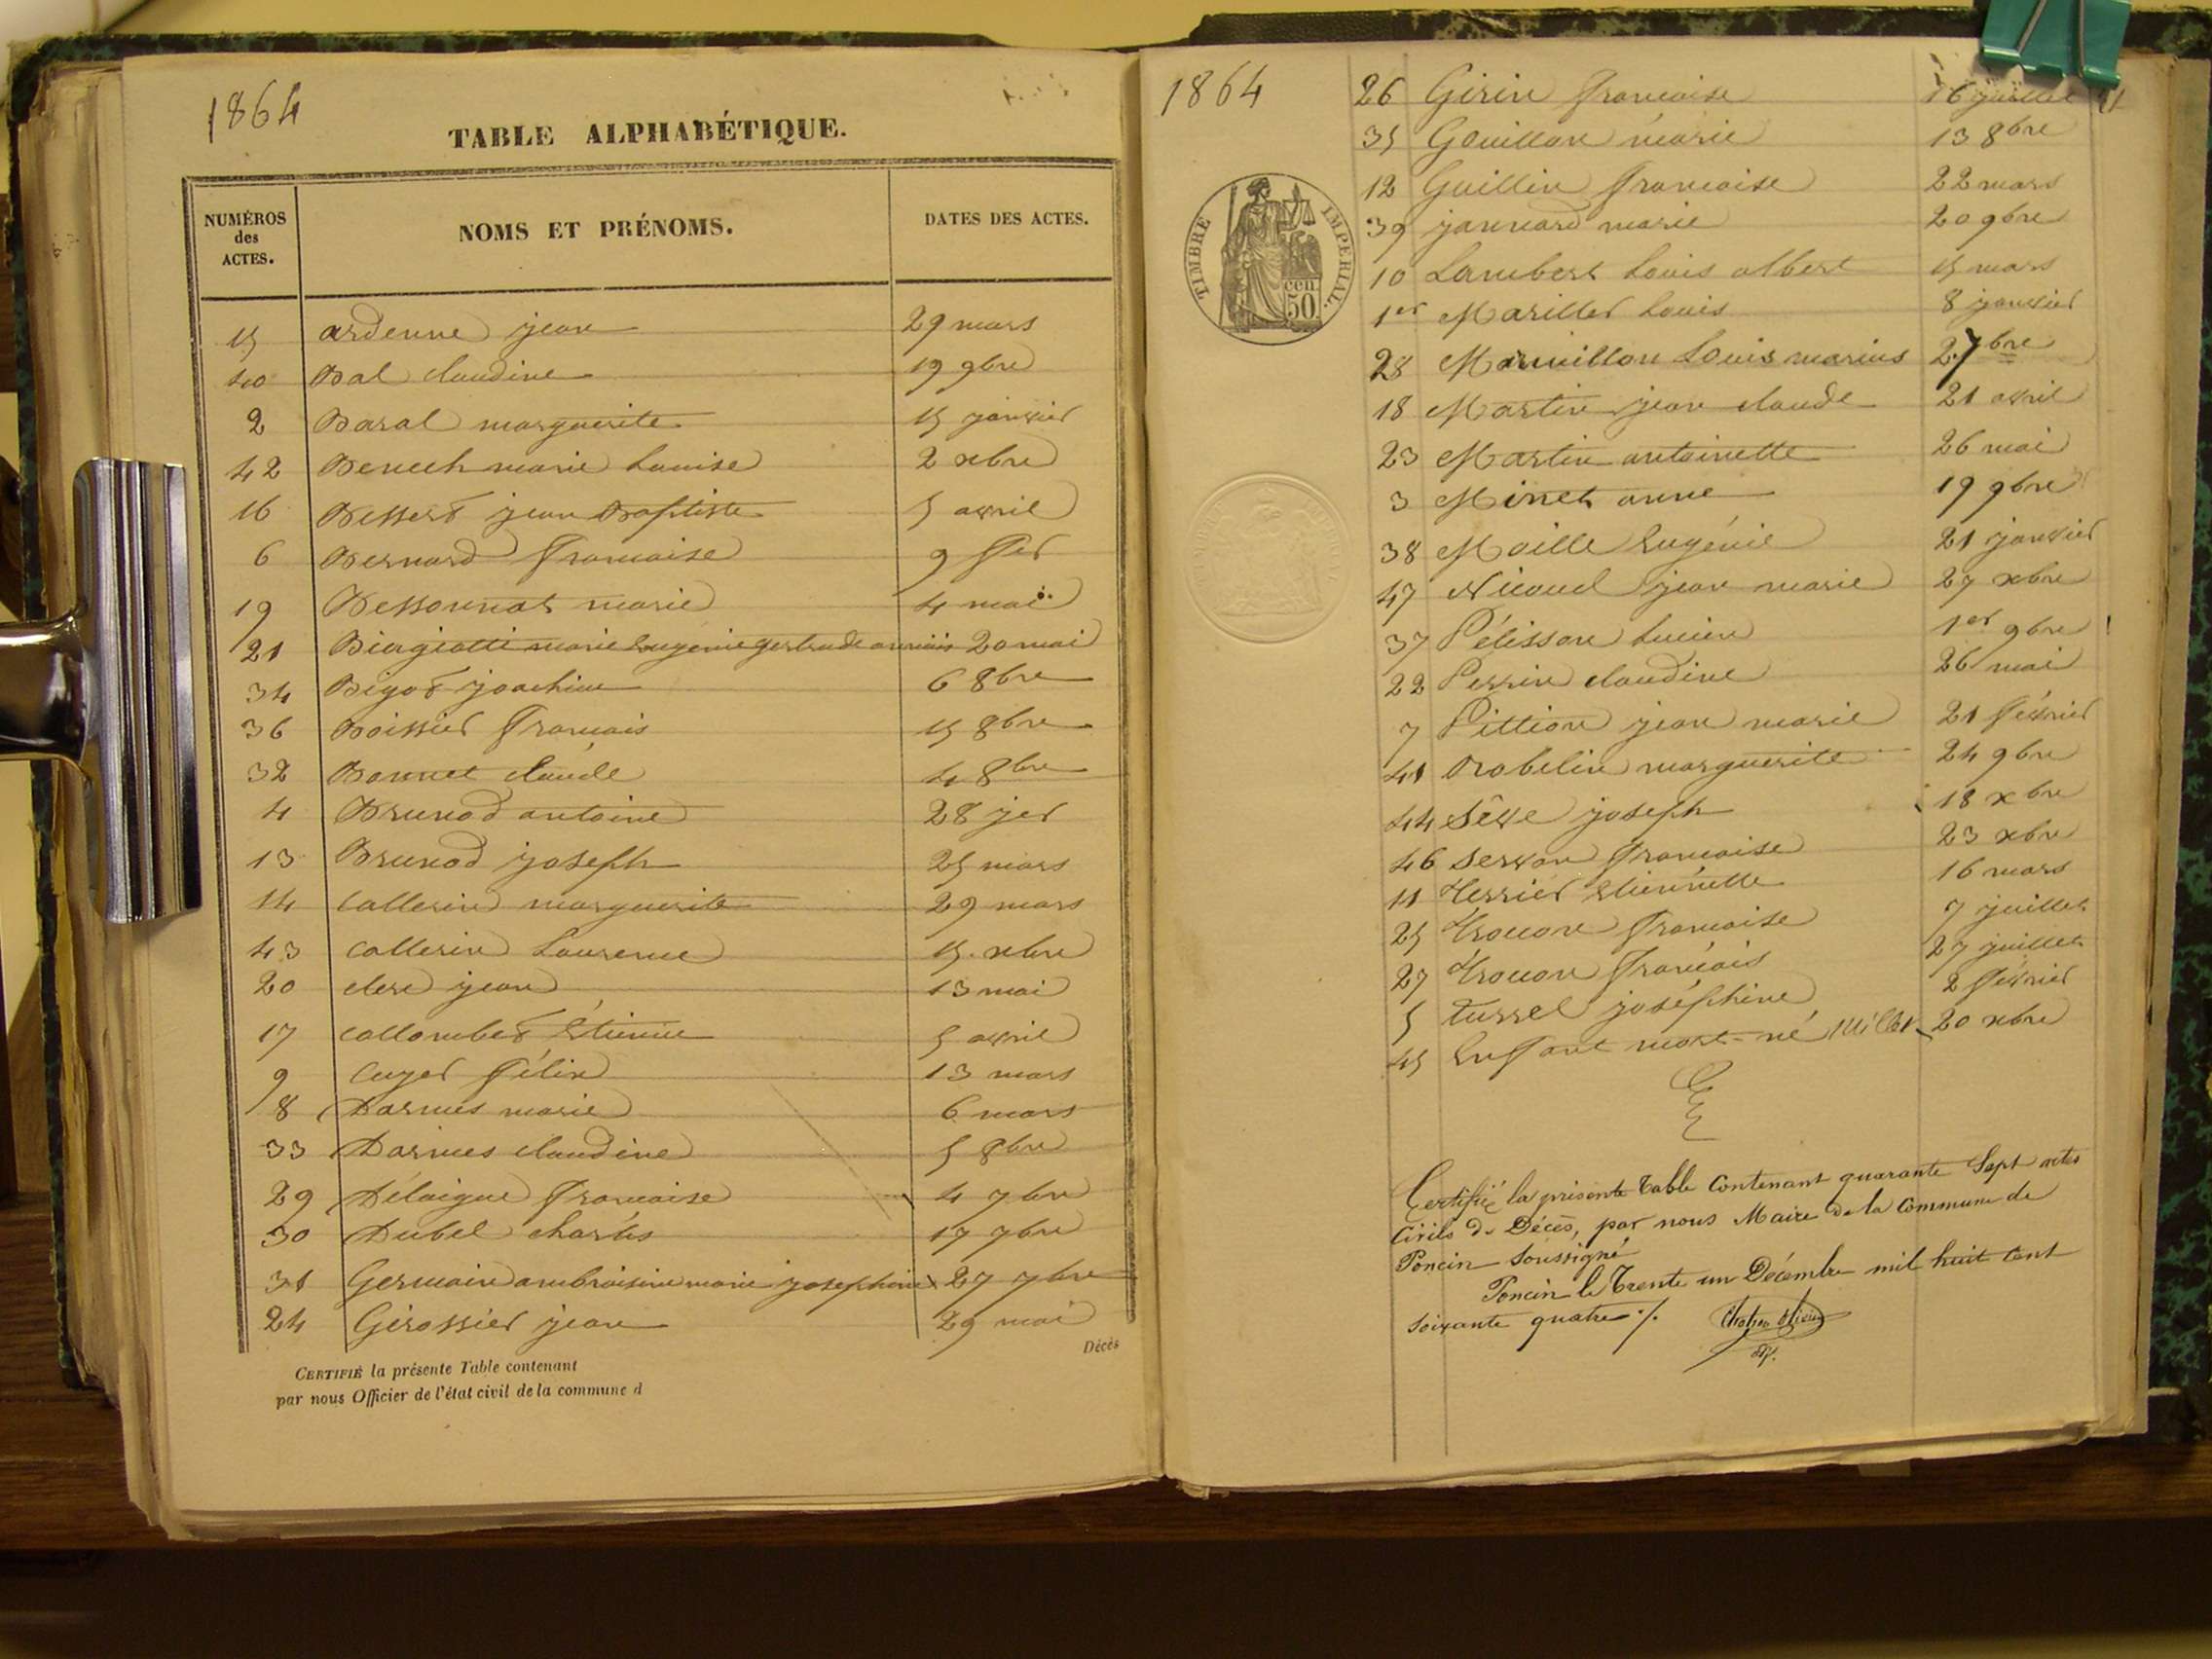 1864
TABLE ALPHABÉTIQUE.
NUMÉROS
des
ACTES.
NOMS ET PRÉNOMS.
DATES DES ACTES.
15 ardenne jean 29 mars
40 Bal claudine 19 9bre
2 Baral marguerite 15 janvier
42 Benech marie Louise 2 xbre
16 Bessert jean Baptiste 5 avril
6 Bernard françoise 9 fer
19 Bessonnat marie 4 mai
21 Biagiotti marie Eugénie gertrude 20 mai
34 Bigot joachim 6 8bre
36 Boissier françois 15 8bre
32 Bonnet claude 4 8bre
4 Brunod antoine 28 jer
13 Brunod joseph 25 mars
14 Callerin marguerite 29 mars
43 Callerin Laurence 15 xbre
20 clerc jean 13 mai
17 collombet Etienne 5 avril
9 Cuzel félix 13 mars
8 Darmes marie 6 mars
33 Darmes claudine 5 8bre
29 Délaigue françoise 4 7bre
30 Dubel charles 17 7bre
31 Germain ambroisine marie josephine 27 7bre
24 Girossier jean 29 mai
CERTIFIÉ la présente Table contenant
par nous Officier de l'état civil de la commune d
Décès
1864
TIMBRE IMPÉRIAL.
50 cen
26 Girin françoise 16 juillet
35 Gouillon marie 13 8bre
12 Guillin françoise 22 mars
39 jannard marie 20 9bre
10 Lambert Louis albert 15 mars
1er Mariller Louis 8 janvier
28 Marmillon Louis marius 2.7bre
18 Martin jean claude 21 avril
23 Martin antoinette 26 mai
3 Minet anne 19 9bre
38 Moille Eugénie 21 janvier
47 Nicoud jean marie 27 xbre
37 Pélisson Lucien 1er 9bre
22 Perrin claudine 26 mai
7 Pittion jean marie 21 février
41 Robelin marguerite 24 9bre
44 Sève joseph 18 xbre
46 Servan françoise 23 xbre
11 Terrier Etiennette 16 mars
25 Trouon françoise 7 juillet
27 Trouon françois 27 juillet
5 Turrel joséphine 2 février
45 Enfant mort-né Millet 20 xbre
Certifié la présente table Contenant quarante Sept actes
Civils de Décès, par nous Maire de la Commune de
Poncin Soussigné
Poncin le Trente un Décembre mil huit cent
soixante quatre ./.